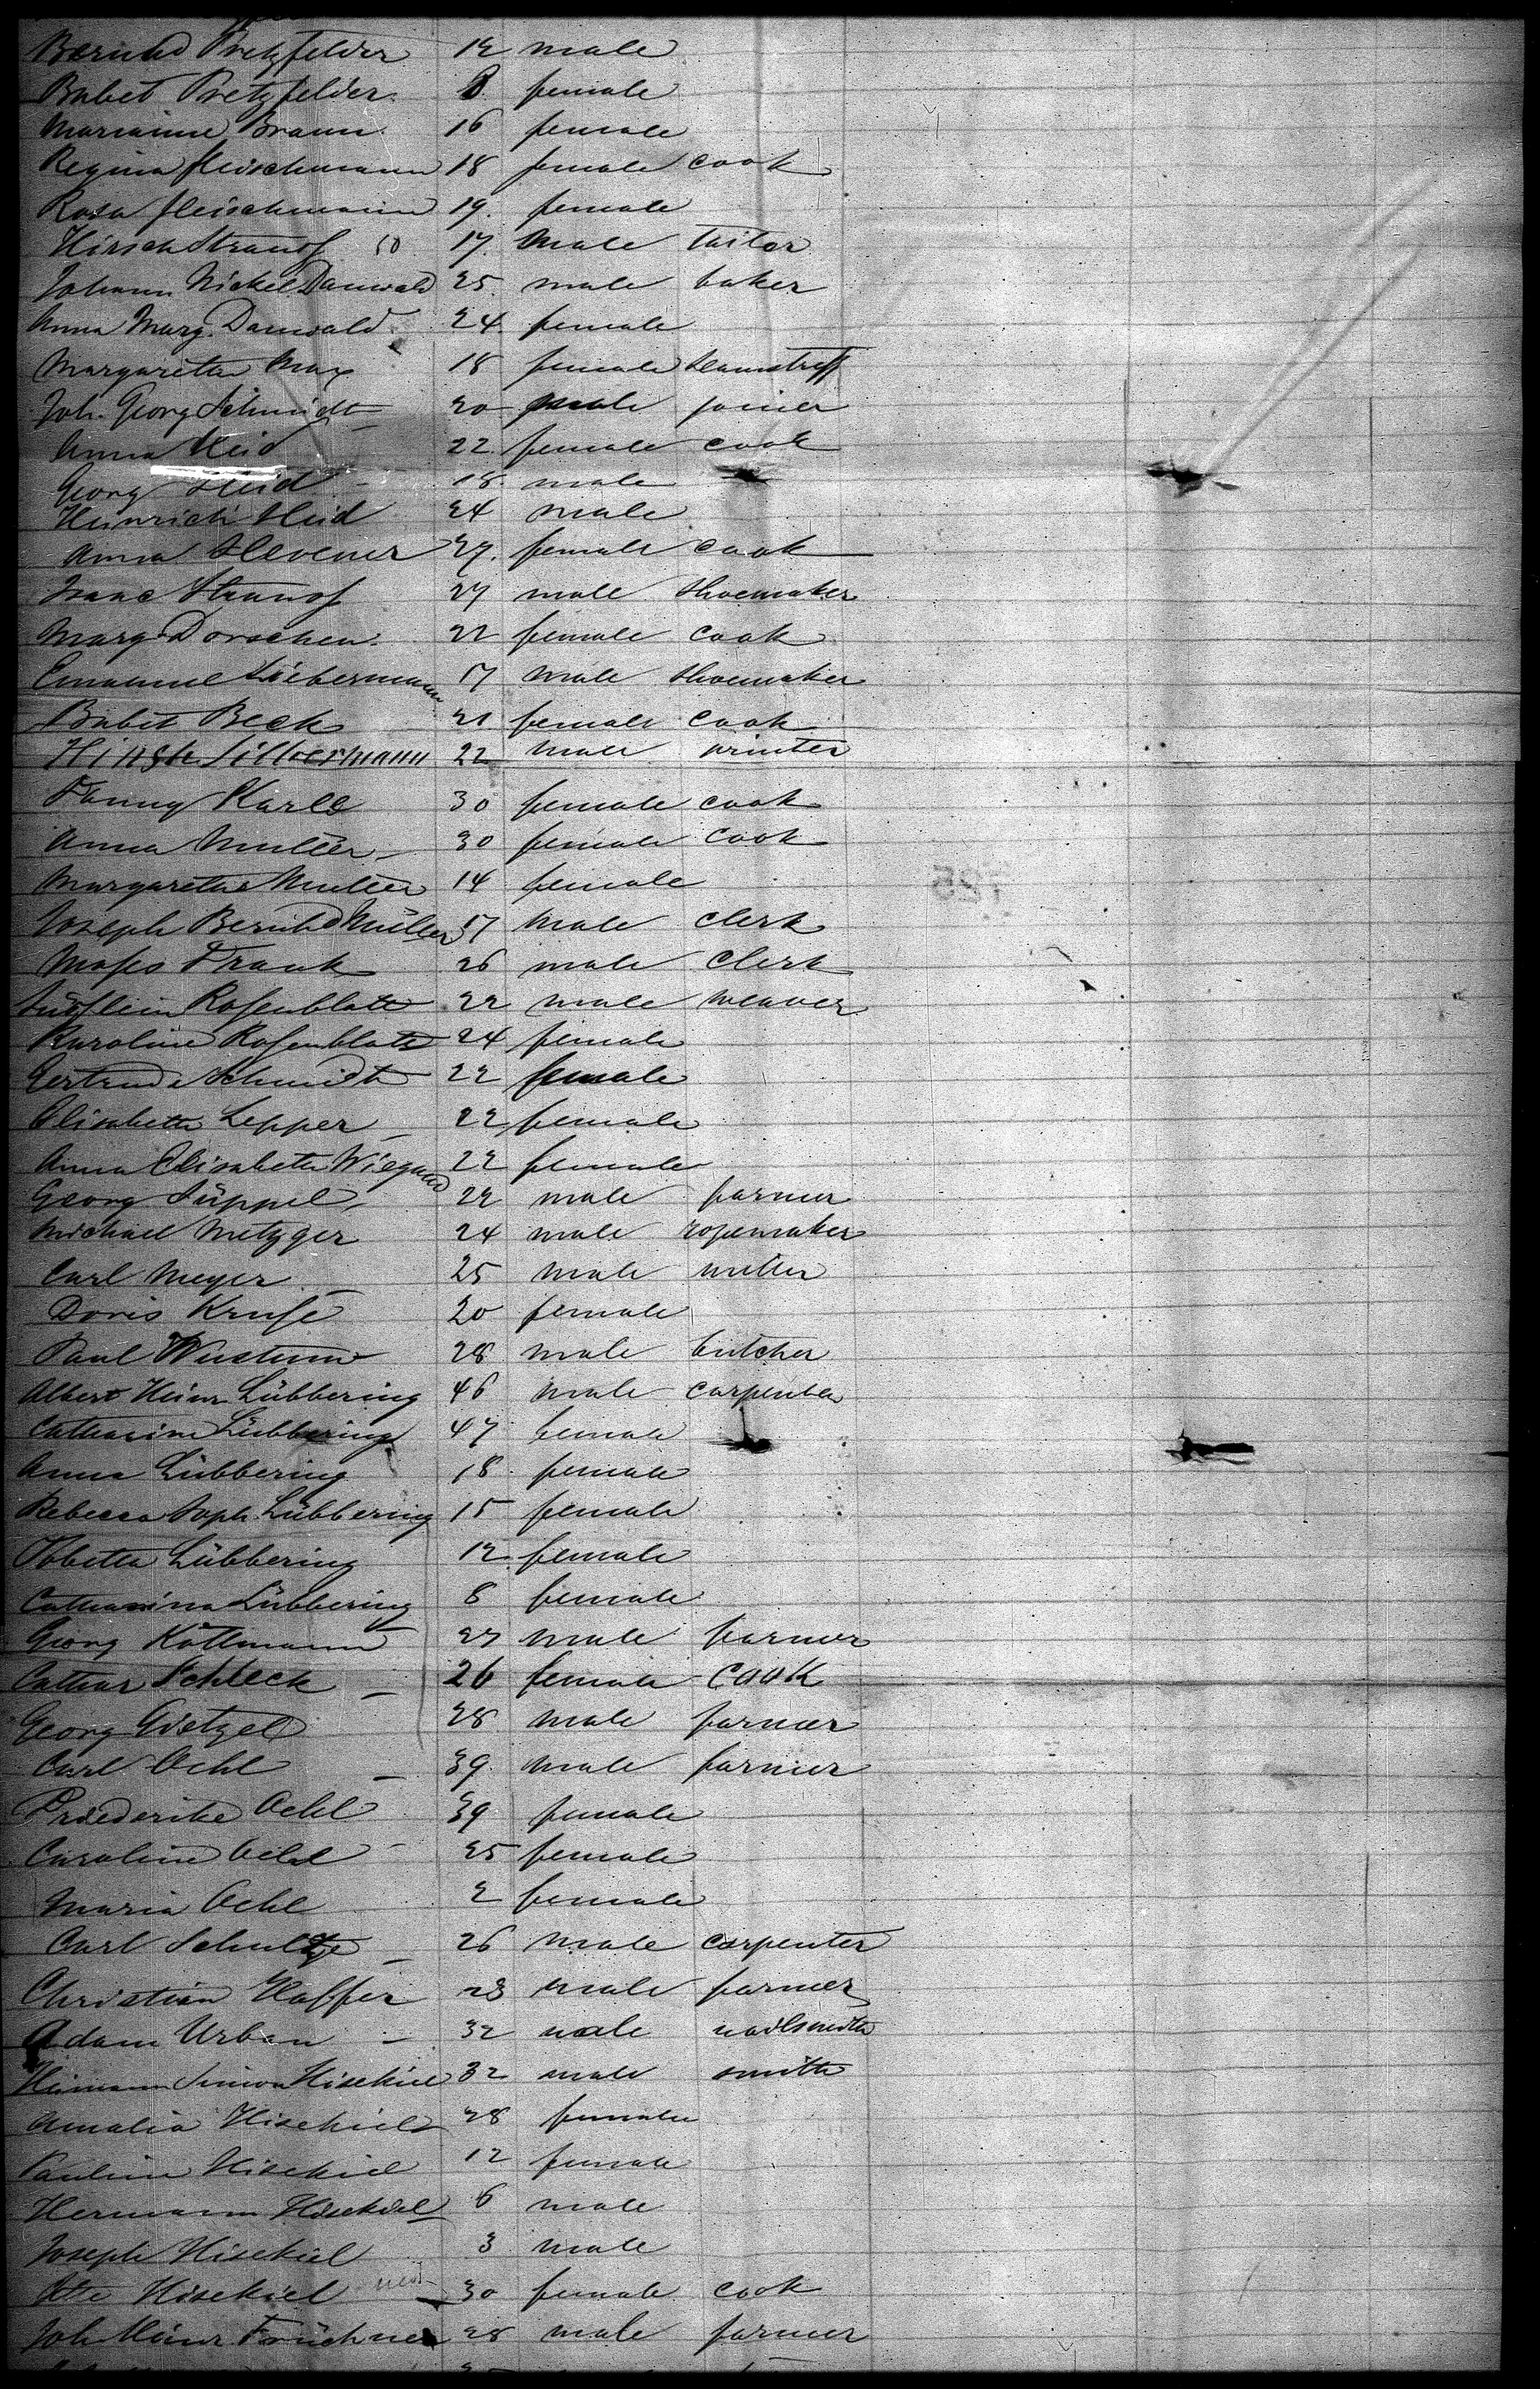 Bernhd Pretzfelder 12 male
Babet Pretzfelder 8 female
Marianne Braun 16 female
Regina Fleischmann 18 female cook
Rosa Fleischmann 19. female
Hirsch Strauss 50 17. male tailor
Johann Nickel Dauwald 25. male baker
Anna Marg. Dauwald 24. female
Margaretha May 18 female seamstress
Joh. Georg Schmidt 20 male joiner
Anna Heid 22 female cook
Georg Heid 18 male
Heinrich Heid 24 male
Anna Hevener 27. female cook
Isaac Strauss 27 male shoemaker
Marg. Dorschen 22 female cook
Emanuel Liebermann 17 male shoemaker
Babet Beck 21 female cook
Hirsch Silbermann 22 male printer
Fanny Karll 30 female cook
Anna Muller 30 female cook
Margaretha Muller 14 female
Joseph Bernhd Müller 17 male clerk
Moses Frank 26 male clerk
Rosenblatt 22 male weaver
Karoline Rosenblatt 24 female
Gertrude Schmidt 22 female
Elisabetha Lepper 22 female
Anna Elisabetha Wiegand 22 female
Georg Süppel 22 male farmer
Michael Metzger 24 male ropemaker
Carl Meyer 25 male miller
Doris Kruse 20 female
Paul 28 male butcher
Albert Heinr Lübbering 46 male carpenter
Catharine Lübbering 47 female
Anna Lübbering 18 female
Rebecca Soph. Lübbering 15 female
Lübbering 12 female
Catharina Lübbering 8 female
Georg Kottmann 27 male farmer
Cathar Schleck 26 female cook
Georg Gietzel 28 male farmer
Carl Oehl 39. male farmer
Friederike Oehl 39 female
Caroline Oehl 25 female
Maria Oehl 2 female
Carl Schultze 26 male carpenter
Christian Haffer 28 male farmer
Adam Urban 32 male nailsmith
Heimann Simon Hisekiel 32 male smith
Amalia Hisekiel 28 female
Pauline Hisekiel 12 female
Hermann Hisekiel 6 male
Joseph Hisekiel 3 male
Hisekiel 30 female cook
Joh Heinr Früchner 28 male farmer